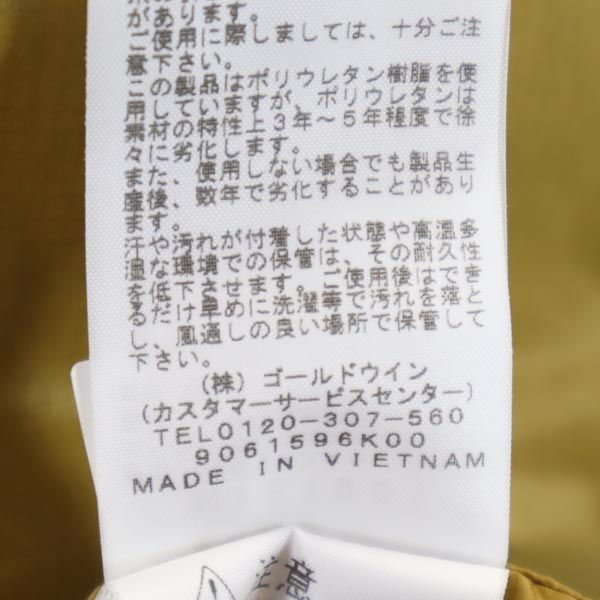 あります。
ご使用に際しましては、十分ご注
意下さい。
この製品はポリウレタン樹脂を使
用していますが、ポリウレタンは
素材の特性上3年～5年程度で徐
々に劣化します。
また、使用しない場合でも製品生
産後、数年で劣化することがあり
ます。
汗や汚れが付着した状態や高温多
湿な環境での保管は、その耐久性
を低下させます。ご使用後はでき
るだけ早めに洗濯等で汚れを落と
し、風通しの良い場所で保管して
下さい。
(株) ゴールドウイン
(カスタマーサービスセンター)
TEL0120-307-560
9061596K00
MADE IN VIETNAM
注意